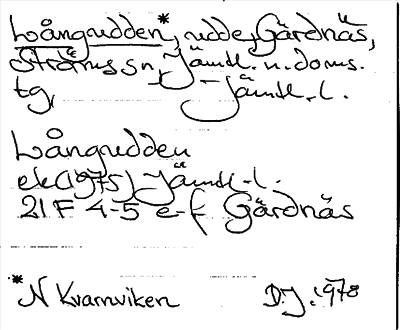 Långudden*, udde, Gärdnäs,
Ströms sn, Jämtl. n. doms.
tg, Jämtl. l.
Långudden
ek (1975) Jämtl. l.
21F 4-5 e-f Gärdnäs
* N Kvarnviken D.J. 1978